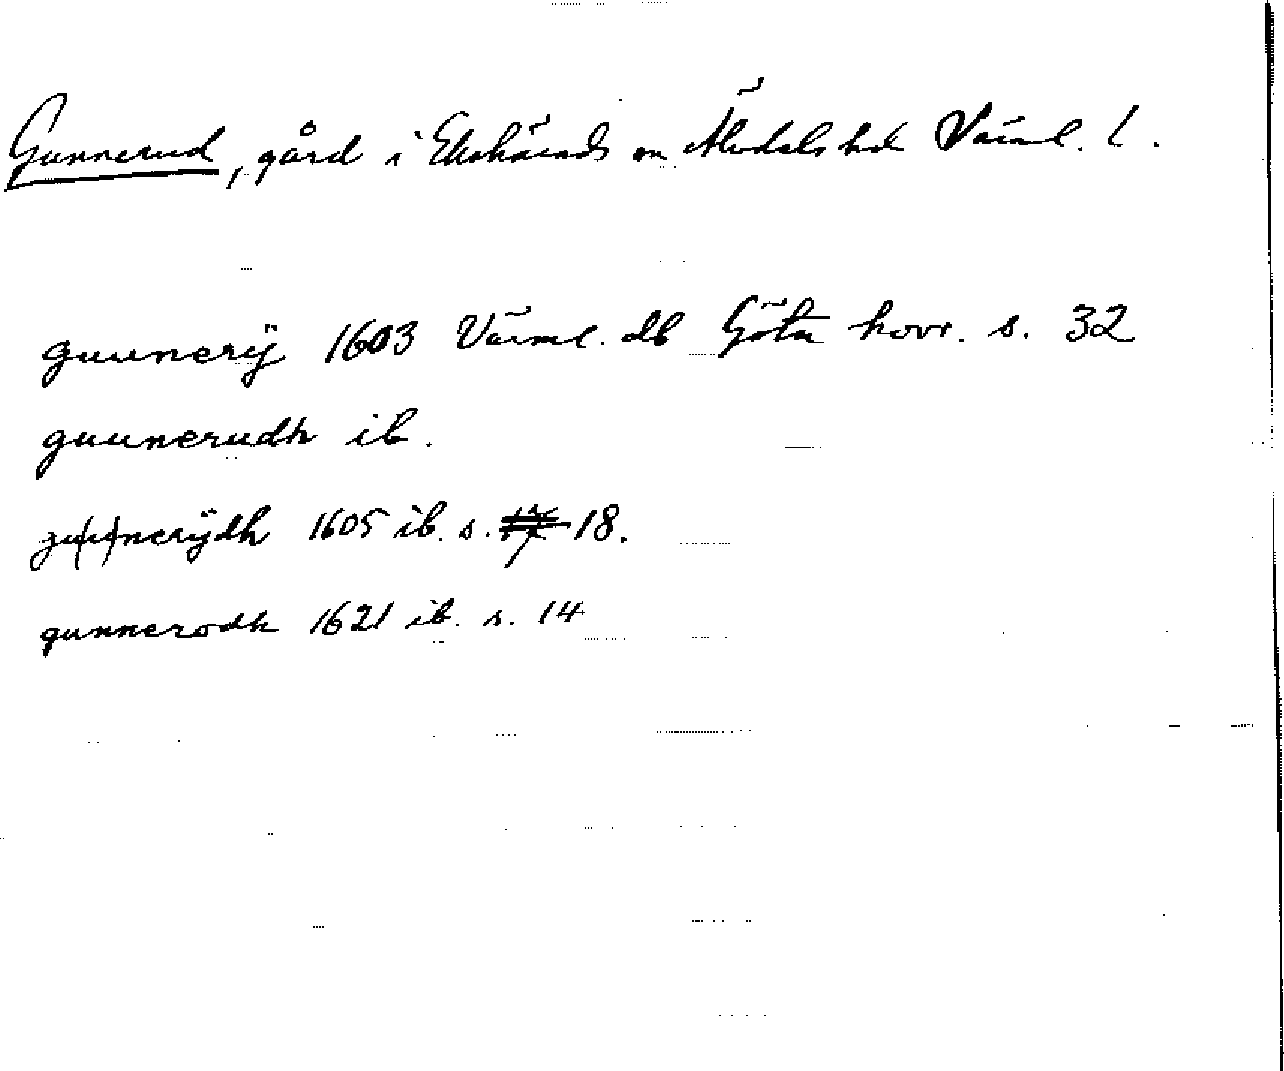 Gunnerud, gård i Ekshärads sn Älvdals hd Värml. l.
guunerÿ 1603 Värml. db Göta hovr. s. 32
guunerudh ib.
guunerÿdh 1605 ib. s. 18.
gunnerodh 1621 ib. s. 14